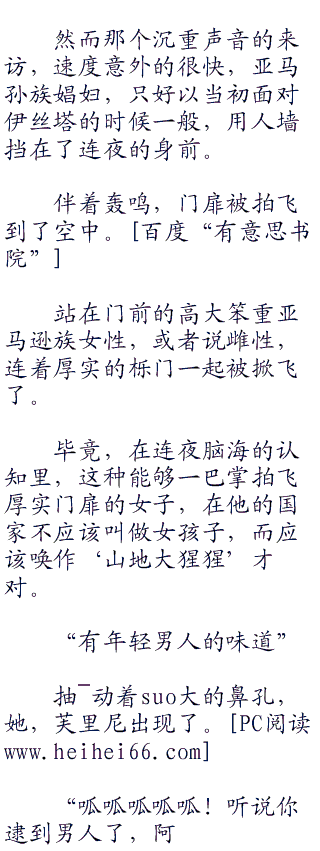 然而那个沉重声音的来
访，速度意外的很快，亚马
孙族娼妇，只好以当初面对
伊丝塔的时候一般，用人墙
挡在了连夜的身前。
伴着轰鸣，门扉被拍飞
到了空中。[百度“有意思书
院”]
站在门前的高大笨重亚
马逊族女性，或者说雌性，
连着厚实的栎门一起被掀飞
了。
毕竟，在连夜脑海的认
知里，这种能够一巴掌拍飞
厚实门扉的女子，在他的国
家不应该叫做女孩子，而应
该唤作‘山地大猩猩’才
对。
“有年轻男人的味道”
抽¯动着suo大的鼻孔，
她，芙里尼出现了。[PC阅读
www.heihei66.com]
“呱呱呱呱呱！听说你
逮到男人了，阿